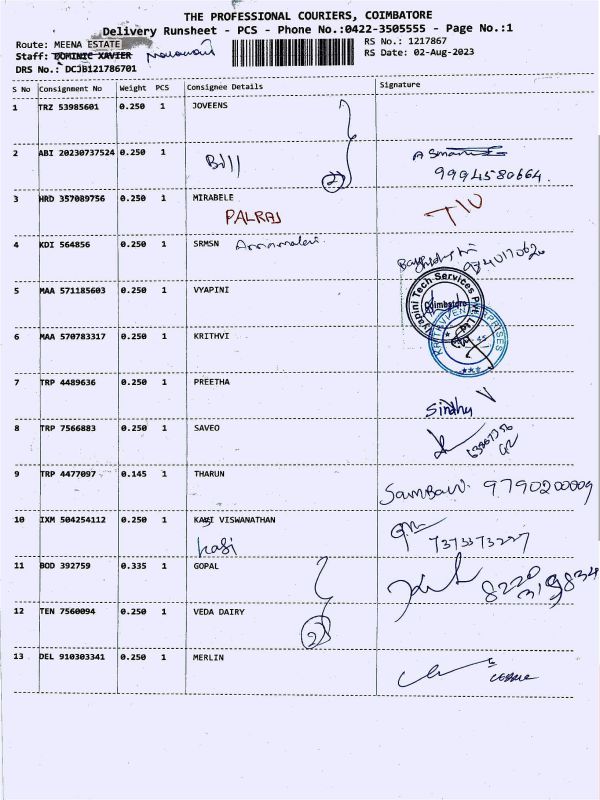 THE PROFESSIONAL COURIERS, COIMBATORE
Delivery Runsheet - PCS - Phone No.:0422-3505555 - Page No.:1
Route: MEENA ESTATE
RS No.: 1217867
Staff: DOMINIC XAVIER
RS Date: 02-Aug-2023
DRS No.: DCJB121786701
S No Consignment No Weight PCS Consignee Details Signature
1 TRZ 53985601 0.250 1 JOVEENS
2 ABI 20230737524 0.250 1
Bill
(2)
9994580664.
3 HRD 357089756 0.250 1 MIRABELE
PALRAJ
4 KDI 564856 0.250 1 SRMSN
5 MAA 571185603 0.250 1 VYAPINI
Vyapini Tech Services Pvt. Ltd
Coimbatore
6 MAA 570783317 0.250 1 KRITHVI
7 TRP 4489636 0.250 1 PREETHA
Sindhu
8 TRP 7566883 0.250 1 SAVEO
9 TRP 4477097 0.145 1 THARUN
9790200009
10 IXM 504254112 0.250 1 KASI VISWANATHAN
Kasi
7373373227
11 BOD 392759 0.335 1 GOPAL
12 TEN 7560094 0.250 1 VEDA DAIRY
(2)
13 DEL 910303341 0.250 1 MERLIN